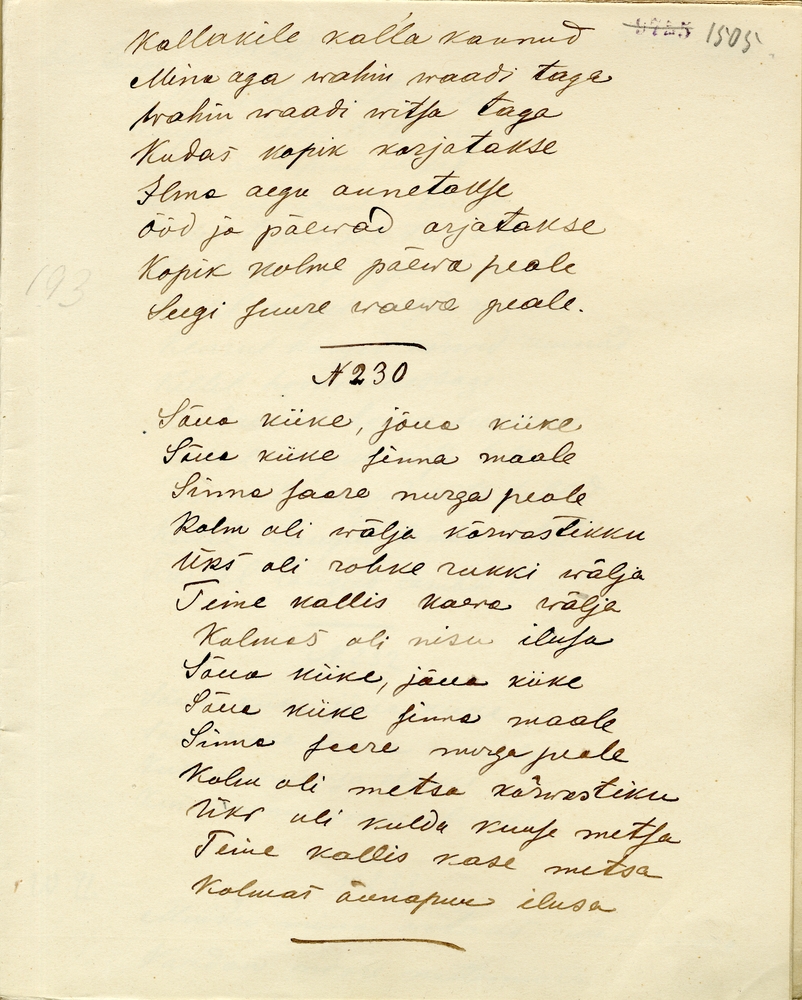 1505
Kallakile kalla kannud
Mina aga wahin waadi taga
Wahin waadi witsa taga
Kudas kopik korjatakse
Ilma aegu annetakse
Ööd ja päewad orjatakse
Kopik kolme päewa peale
Seegi suure waewa peale.
193
N 230
Sõua kiike, jõua kiike
Sõua kiike sinna maale
Sinna saare nurga peale
Kolm oli wälja kõrwastikku
Üks oli rohke rukki wälja
Teine kallis kaera wälja
Kolmas oli nisu ilusa
Sõua kiike, jõua kiike
Sõua kiike sinna maale
Sinna saare nurga peale
Kolm oli metsa kõrwastiku
Üks oli kulda kuuse metsa
Teine kallis kase metsa
Kolmas õunapuu ilusa